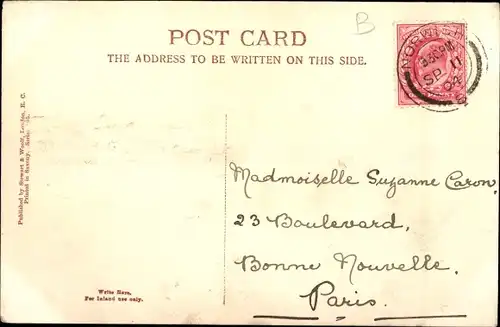 B
POST CARD
THE ADDRESS TO BE WRITTEN ON THIS SIDE.
NORWICH
3.30PM
SP 11
04
Published by Stewart & Woolf, London, E. C.
Printed in Saxony. Series
Madmoiselle Suzanne Caron,
23 Boulevard,
Bonne Nouvelle,
Paris.
Write Here,
For Inland use only.